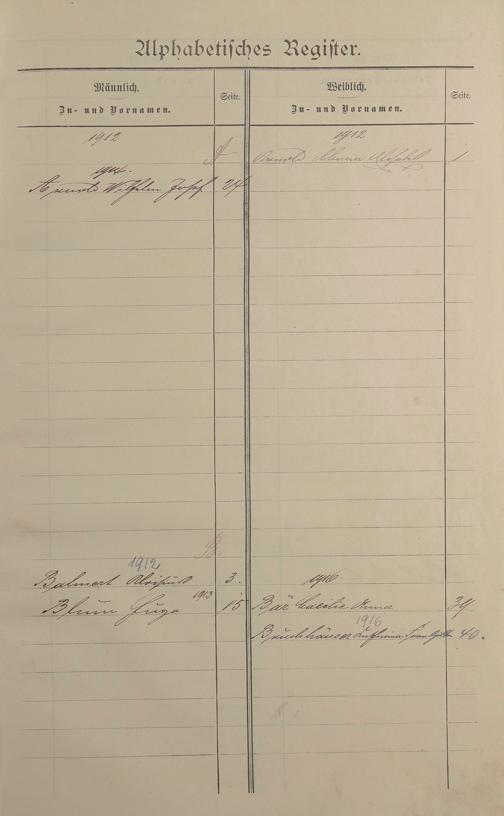 Alphabetisches Register.
Männlich.
Zu- und Vornamen.
Seite.
Weiblich.
Zu- und Vornamen.
Seite.
1912
A
1914.
Arnold Wilhelm Josef 24
1912
Arnold 1
B.
1912
Balmert Aloisius 3.
Blum Hugo 1913 15
1916.
Bär Caecilie Anna 39.
1916
40.